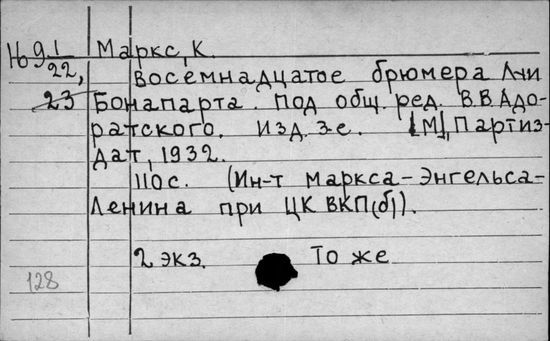 Ю 9 1/22, Маркс, К.
23
Восемнадцатое брюмера Луи
Бонапарта. Под общ. ред. В.В.Адо-
ратского. Изд. 3-е. [М], Партиз-
дат, 1932.
110 с. (Ин-т Маркса-Энгельса-
Ленина при ЦК ВКП(б)).
2 экз. То же
128